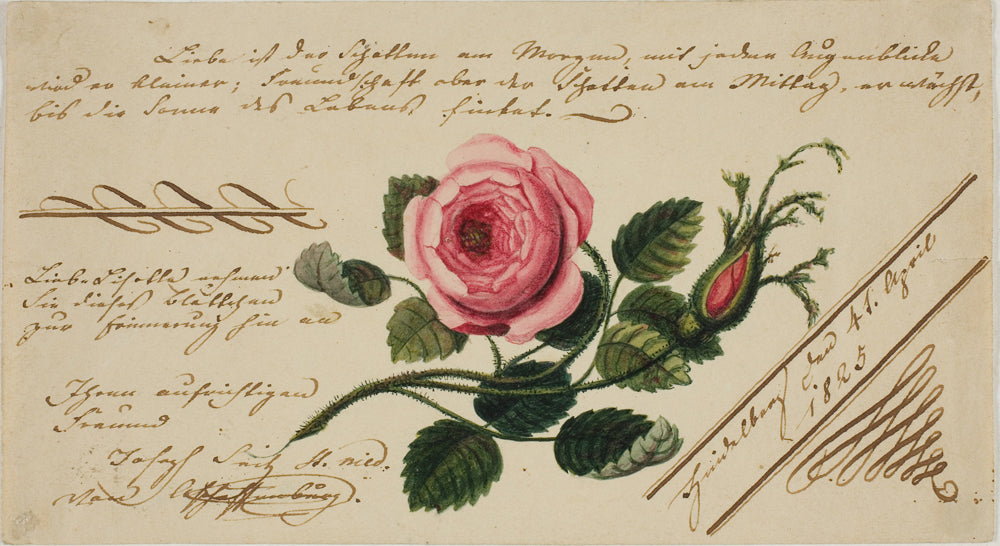 Liebe ist der Schatten am Morgen, mit jedem Augenblicke
wird er kleiner; Freundschaft aber der Schatten am Mittag, er wächst,
bis die Sonne des Lebens sinket.
Liebe nehmen
Sie dieses Blättchen
zur Erinnerung hin an
Ihren aufrichtigen
Freund
Joseph Seitz St. med.
von Aschaffenburg.
Heidelberg den 4t. April
1825